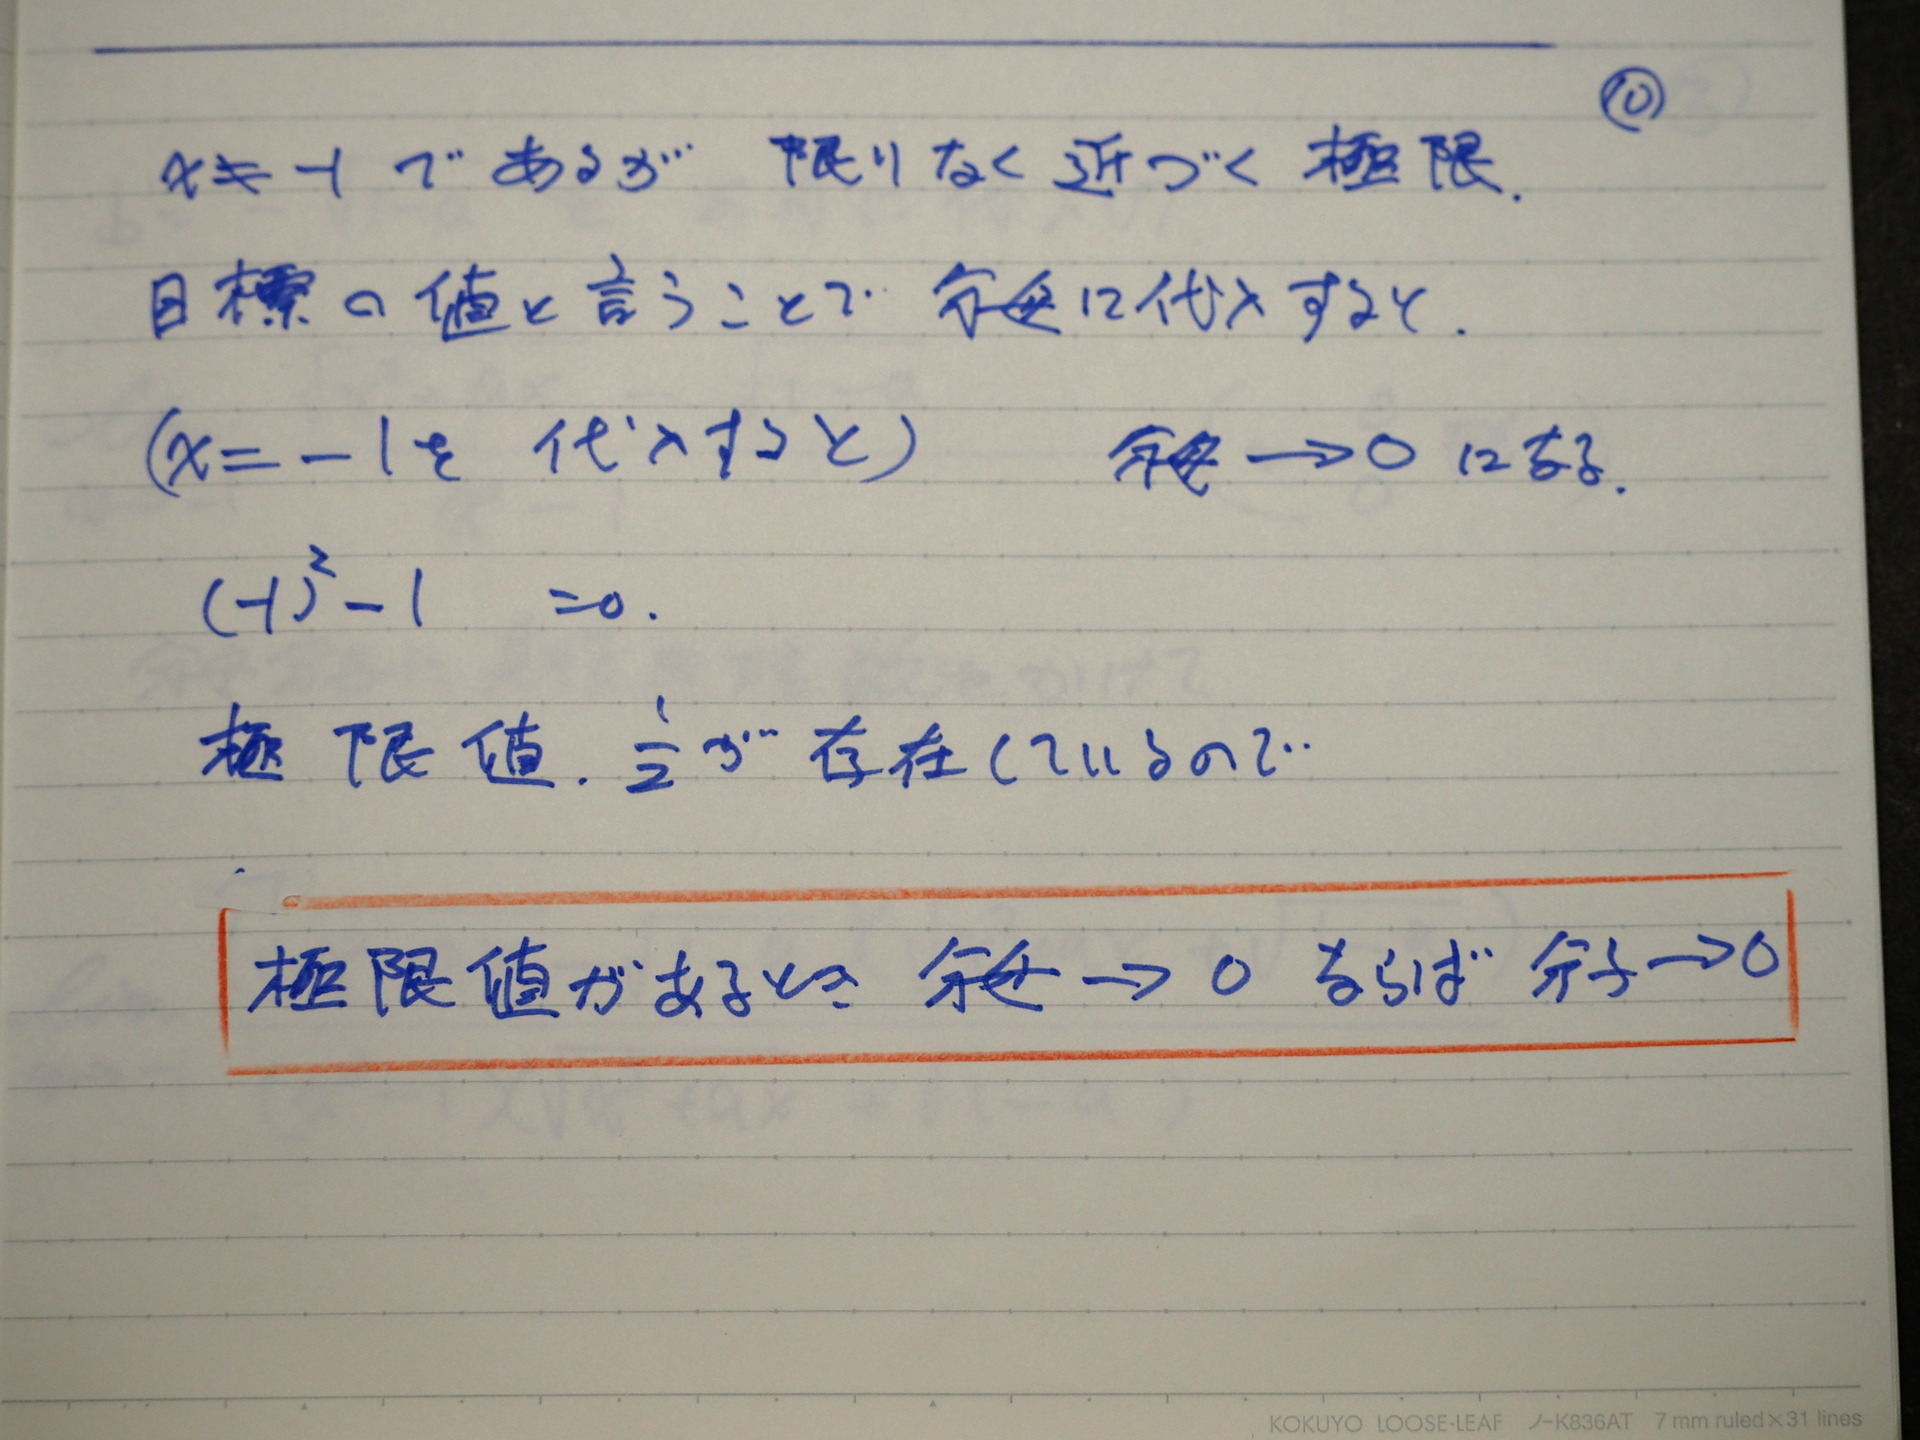 ⑩
x≠-1 であるが 限りなく近づく 極限.
目標の値と言うことで 分母に代入すると.
(x=-1を 代入すると) 分母→0 になる.
(-1)²-1 =0.
極限値. 1/2が 存在しているので
極限値があるとき 分母→0 ならば 分子→0
KOKUYO LOOSE-LEAF ノ-K836AT 7 mm ruled×31 lines